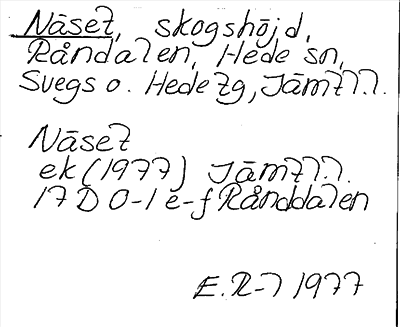 Näset, skogshöjd,
Råndalen, Hede sn,
Svegs o. Hede tg, Jämtl.
Näset
ek (1977) Jämtl.
17 D 0-1 e-f Rånddalen
E.R-7 1977